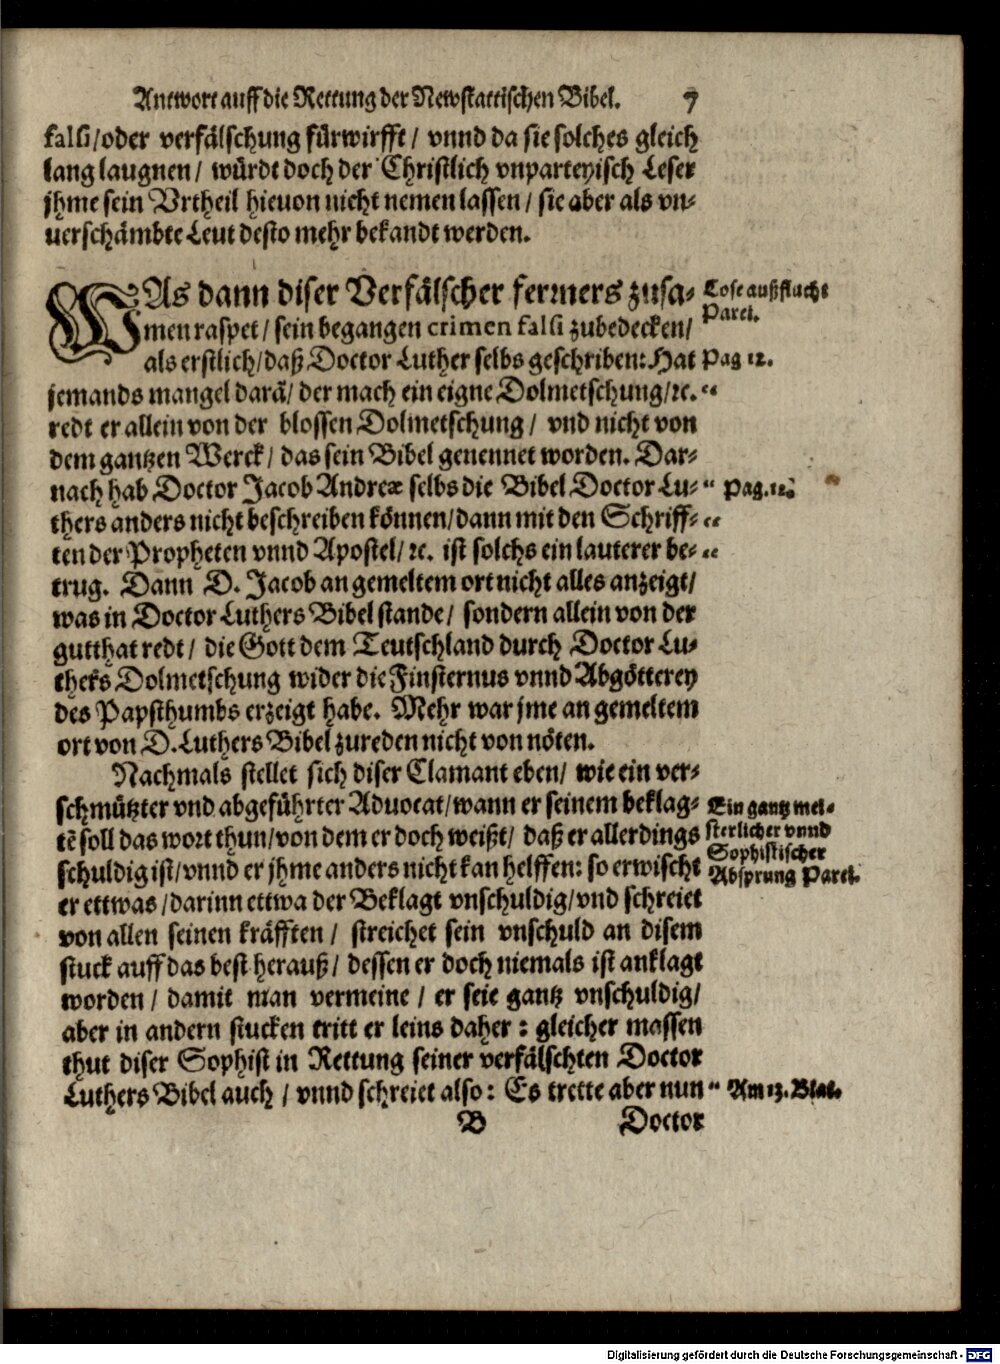 Antwort auff die Rettung der Newstattischen Bibel. 7
falsi/oder verfälschung fürwirfft/ vnnd da sie solches gleich
lang laugnen/ würdt doch der Christlich vnparteyisch Leser
jhme sein Vrtheil hieuon nicht nemen lassen/ sie aber als vn-
uerschämbte Leut desto mehr bekandt werden.
WAs dann diser Verfälscher ferrners zusa-
men raspet/ sein begangen crimen falsi zubedecken/
als erstlich/daß Doctor Luther selbs geschriben: Hat
jemands mangel darā/ der mach ein eigne Dolmetschung/ꝛc. “
redt er allein von der blossen Dolmetschung/ vnd nicht von
dem gantzen Werck/ das sein Bibel genennet worden. Dar-
nach hab Doctor Jacob Andreæ selbs die Bibel Doctor Lu- “
thers anders nicht beschreiben können/dann mit den Schriff- “
ten der Propheten vnnd Apostel/ꝛc. ist solchs ein lauterer be- “
trug. Dann D. Jacob an gemeltem ort nicht alles anzeigt/
was in Doctor Luthers Bibel stande/ sondern allein von der
gutthat redt/ die Gott dem Teutschland durch Doctor Lu-
thers Dolmetschung wider die Finsternus vnnd Abgötterey
des Papsthumbs erzeigt habe. Mehr war jme an gemeltem
ort von D. Luthers Bibel zureden nicht von nöten.
Nachmals stellet sich diser Clamant eben/ wie ein ver-
schmützter vnd abgeführter Aduocat/wann er seinem beklag-
tē soll das wort thun/von dem er doch weißt/ daß er allerdings
schuldig ist/vnnd er jhme anders nicht kan helffen: so erwischt
er ettwas/darinn ettwa der Beklagt vnschuldig/vnd schreiet
von allen seinen kräfften/ streichet sein vnschuld an disem
stuck auff das best herauß/ dessen er doch niemals ist anklagt
worden/ damit man vermeine/ er seie gantz vnschuldig/
aber in andern stucken tritt er leins daher: gleicher massen
thut diser Sophist in Rettung seiner verfälschten Doctor
Luthers Bibel auch/ vnnd schreiet also: Es trette aber nun “
B Doctor
Lose außflucht
Parei.
Pag 12.
Pag. 12.
Ein gantz mei-
sterlicher vnnd
Sophistischer
Absprung Parei.
Am 13. Blat.
Digitalisierung gefördert durch die Deutsche Forschungsgemeinschaft - DFG